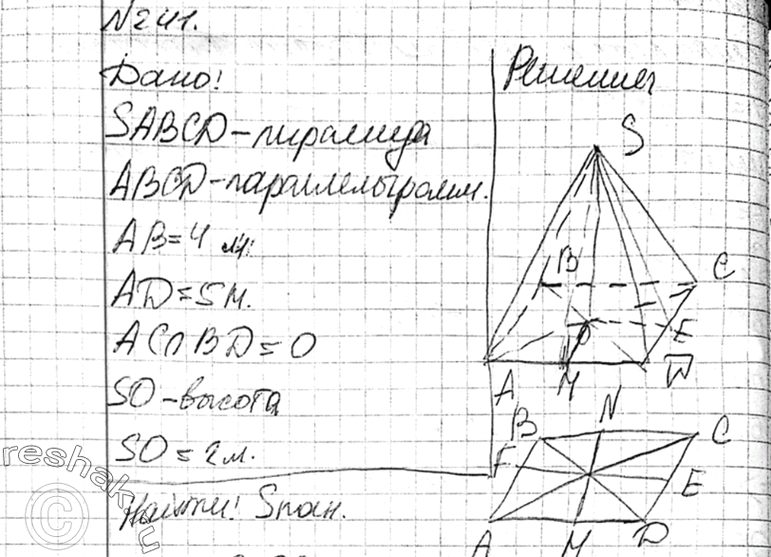 №241.
Дано:
SABCD - пирамида
ABCD - параллелограмм.
AB = 4 м.
AD = 5 м.
AC∩BD = O
SO - высота
SO = 2 м.
Найти: Sпол.
Решение
S
B
C
O
E
A
M
D
N
B
C
F
E
A
M
D
reshak.ru